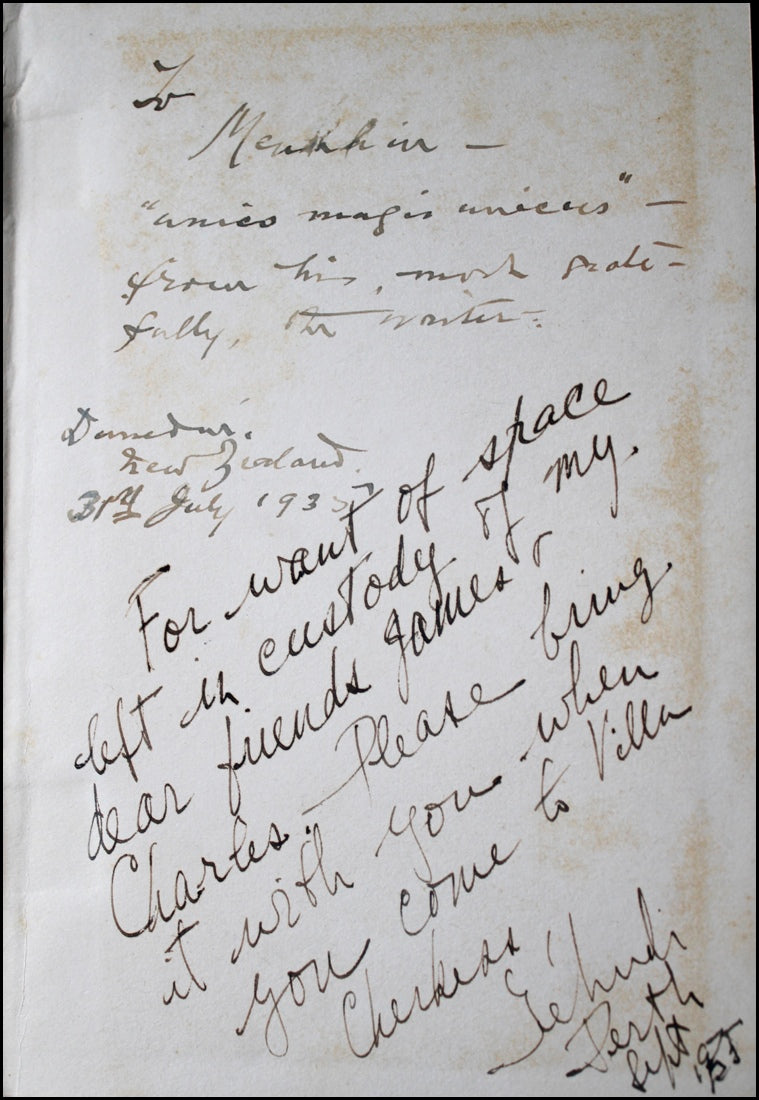 To
Menuhin —
"unico magis unicus" —
from his, most grate-
fully, the writer.
Dunedin.
New Zealand.
31st July 1935
For want of space
left in custody of my
dear friends James &
Charles. Please bring
it with you when
you come to Villa
Cherkess,
Yehudi
Perth
Sept 1935